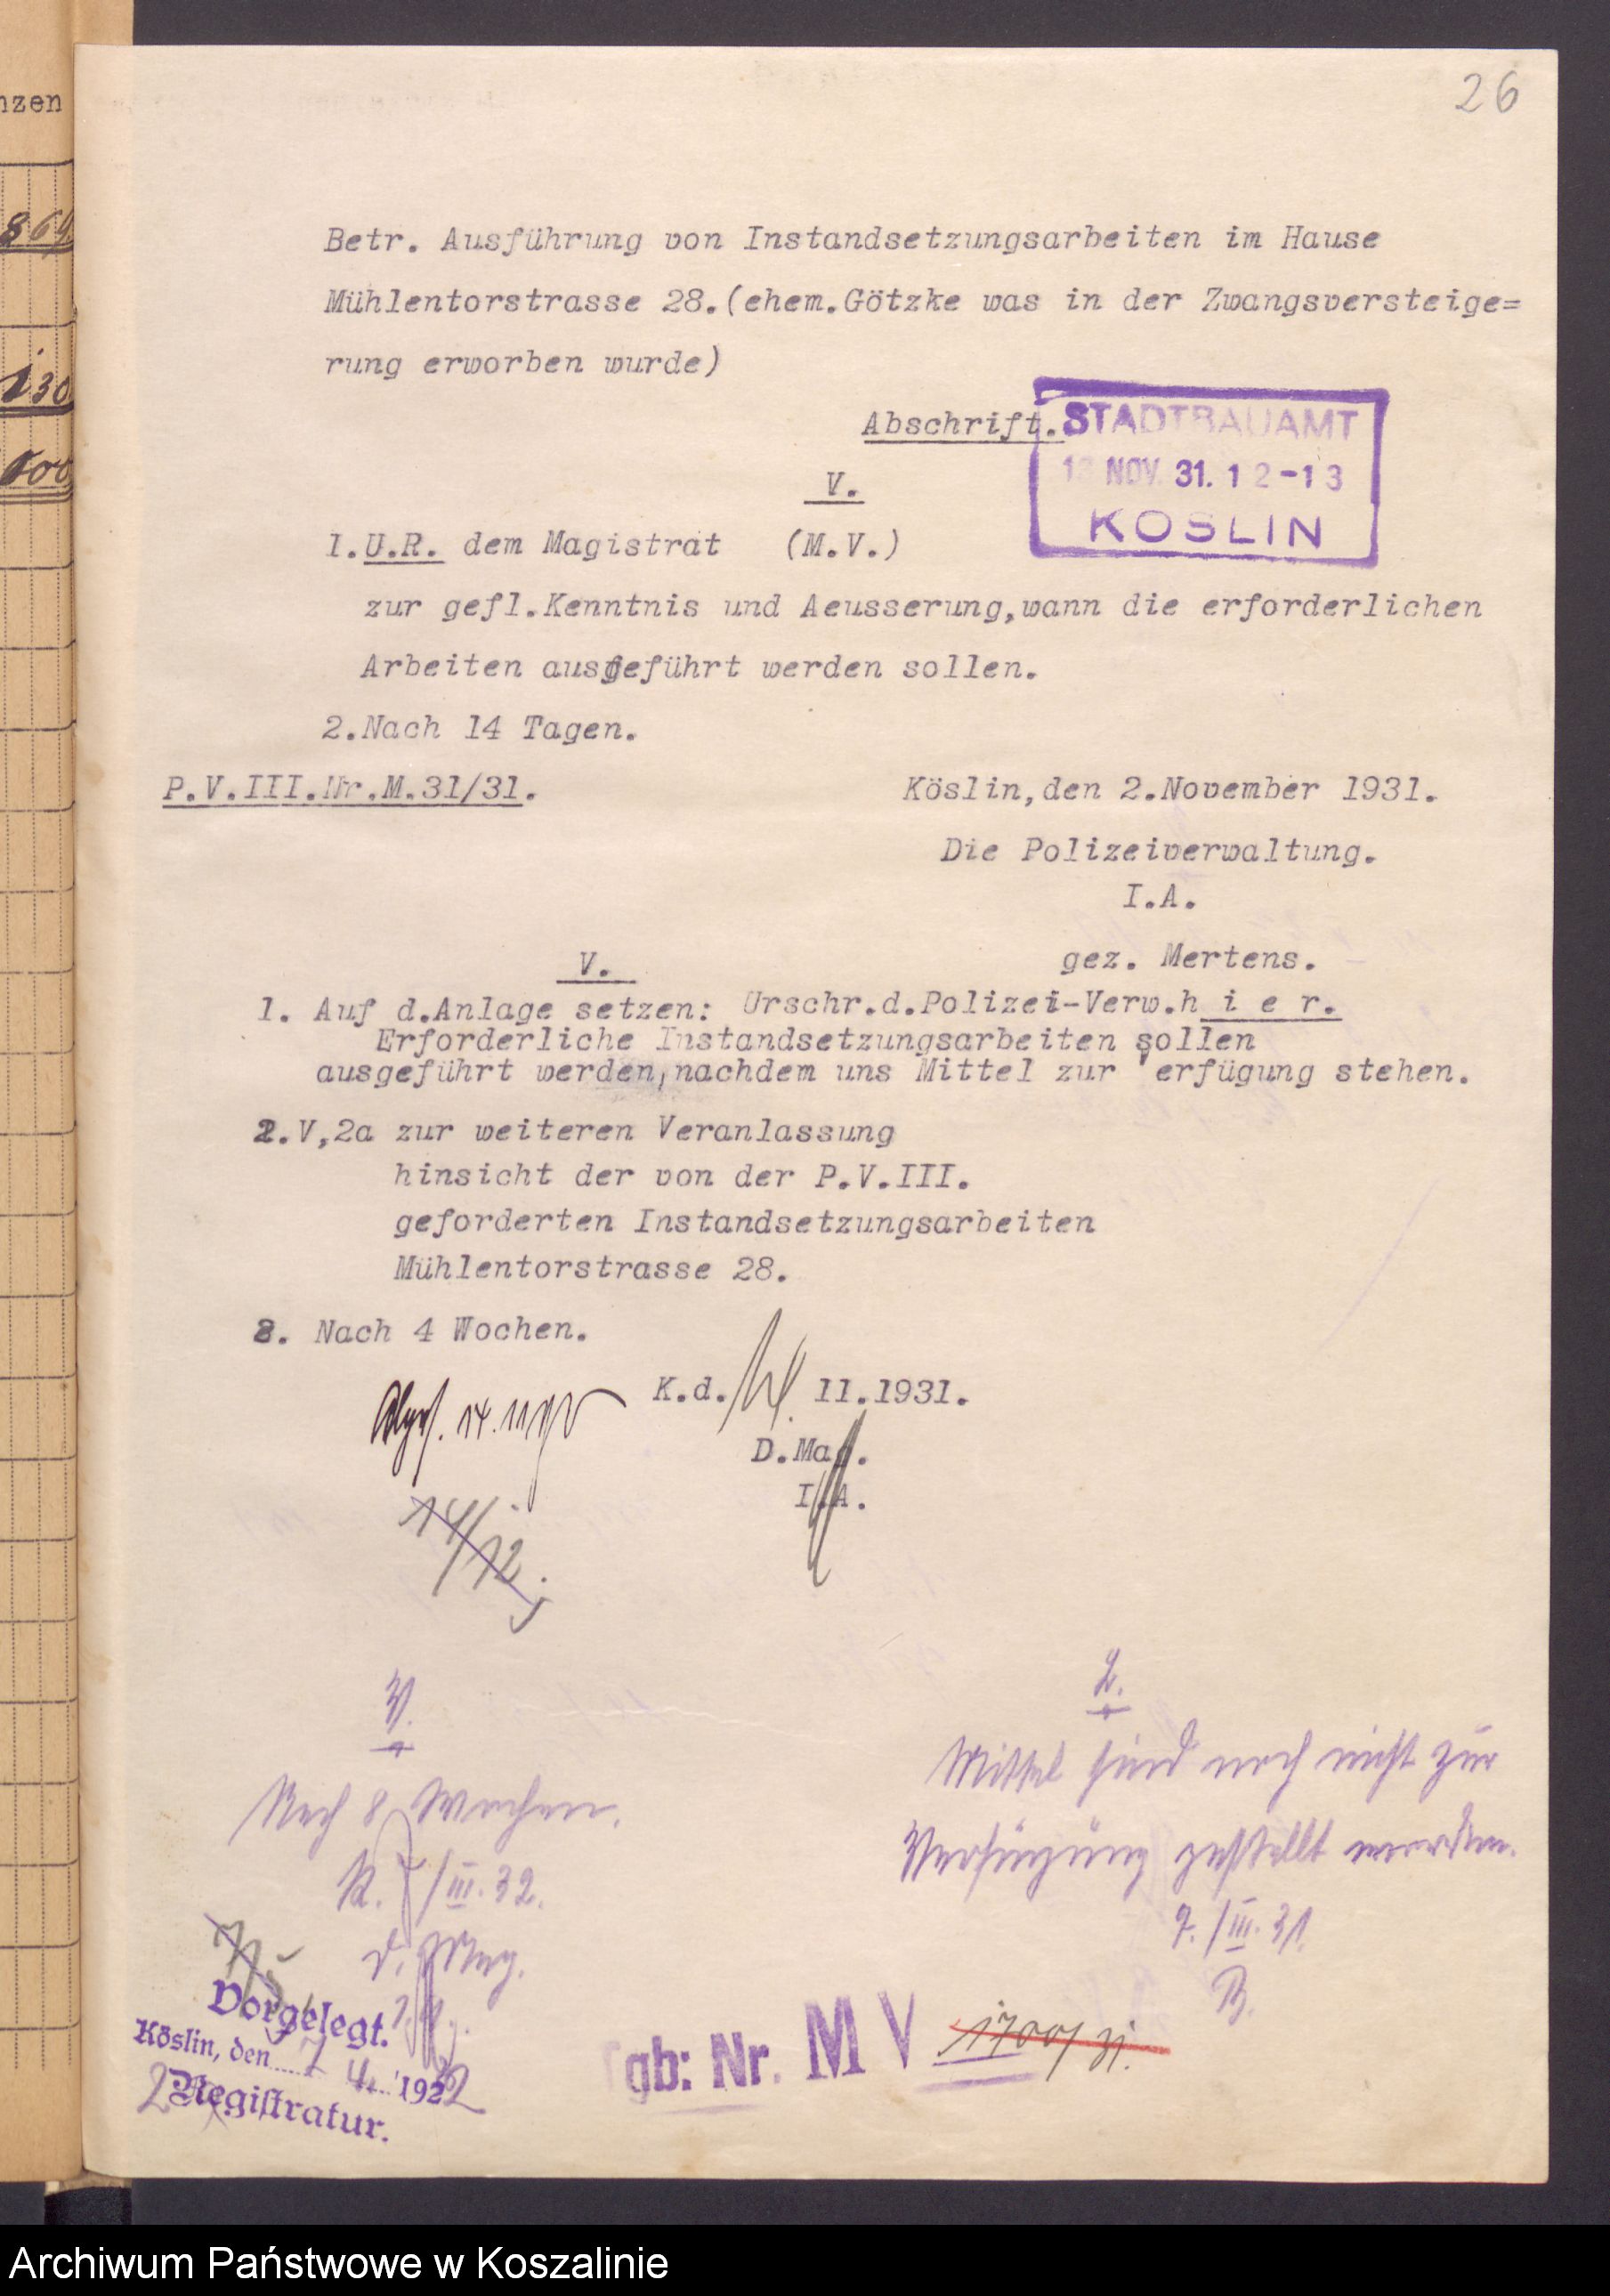 26
nzen
869
130
600
Betr. Ausführung von Instandsetzungsarbeiten im Hause
Mühlentorstrasse 28.(ehem.Götzke was in der Zwangsversteige=
rung erworben wurde)
Abschrift.
STADTBAUAMT
NOV. 31. 12-13
KÖSLIN
V.
1.U.R. dem Magistrat (M.V.)
zur gefl.Kenntnis und Aeusserung,wann die erforderlichen
Arbeiten ausgeführt werden sollen.
2.Nach 14 Tagen.
P.V.III.Nr.M.31/31.
Köslin,den 2.November 1931.
Die Polizeiverwaltung.
I.A.
gez. Mertens.
V.
1. Auf d.Anlage setzen: Urschr.d.Polizei-Verw.h i e r.
Erforderliche Instandsetzungsarbeiten sollen
ausgeführt werden,nachdem uns Mittel zur Verfügung stehen.
2.V,2a zur weiteren Veranlassung
hinsicht der von der P.V.III.
geforderten Instandsetzungsarbeiten
Mühlentorstrasse 28.
3. Nach 4 Wochen.
K.d. 11.1931.
D.Mag.
I.A.
14/12.
V.
Nach 8 Wochen.
K. 7/III.32.
D. Mag.
2.
Mittel sind noch nicht zur
Verfügung gestellt worden.
7./III.31.
B.
7/5
Vorgelegt.
Köslin, den 7 4. 1932
Registratur.
Tgb: Nr. M V 1700/31.
Archiwum Państwowe w Koszalinie